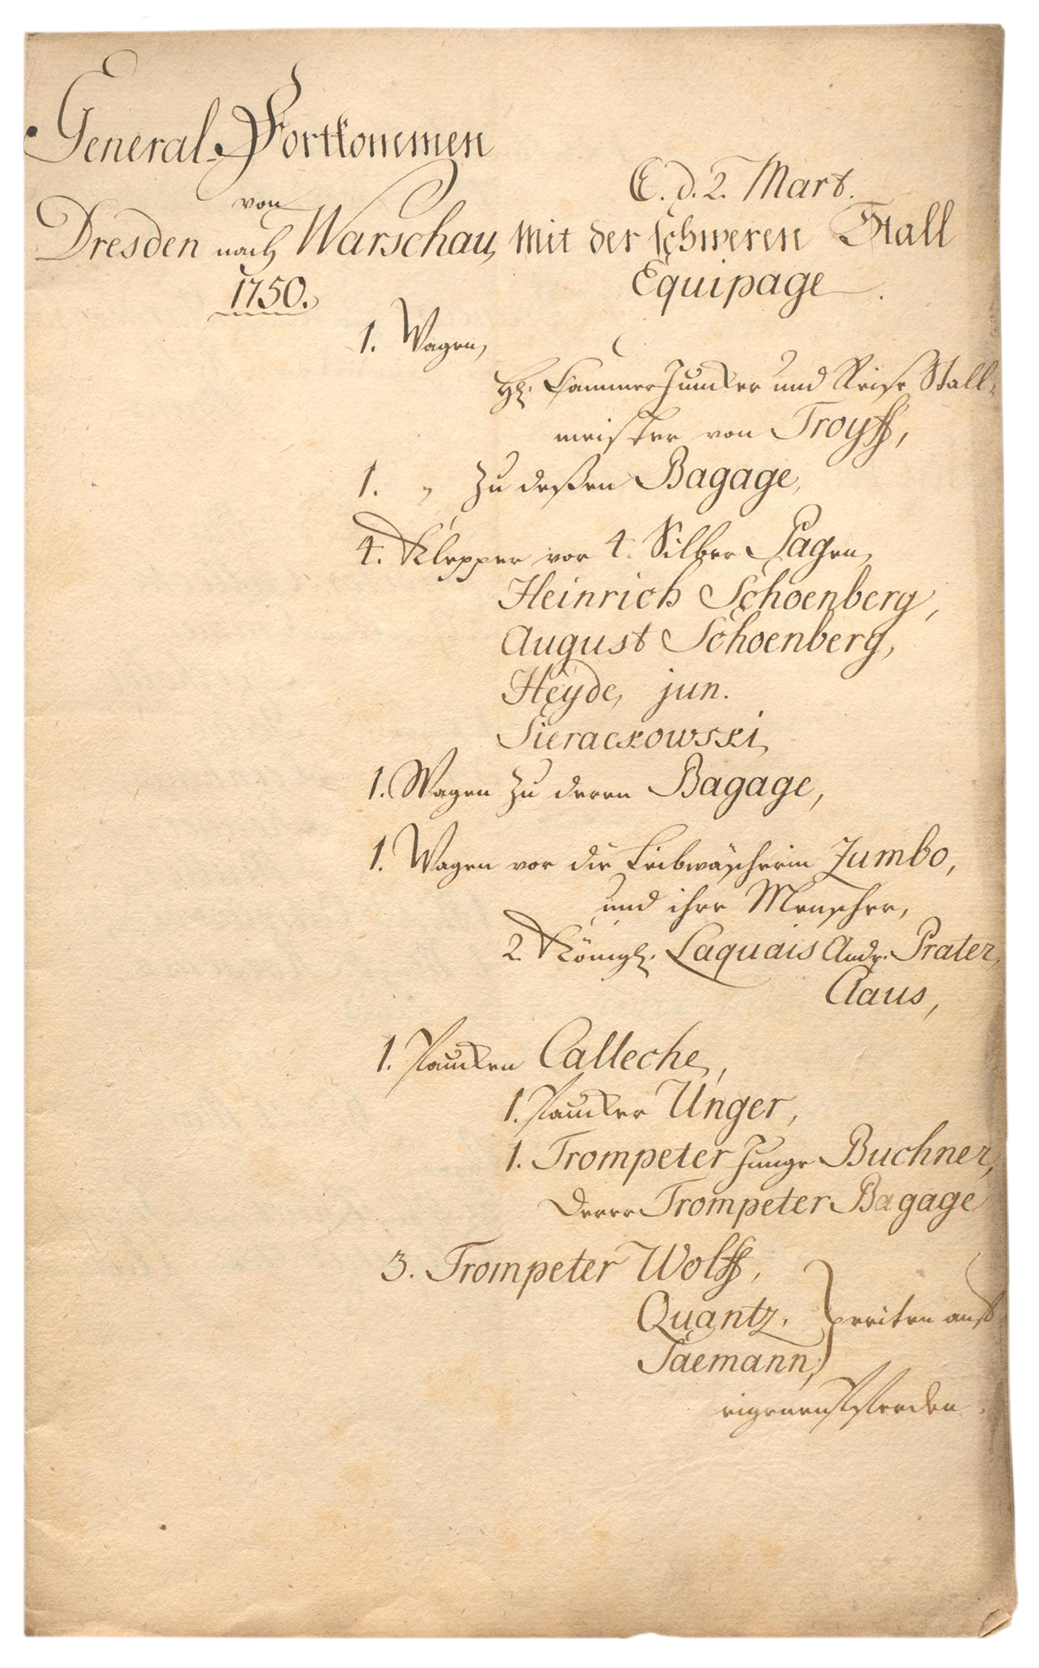 General-Fortkommen
von
Dresden nach Warschau,
1750.
E. d. 2. Mart.
Mit der schweren Stall
Equipage.
1. Wagen,
H. CammerJuncker und Reise Stall-
meister von Troyff,
1. " zu deßen Bagage,
4. Klepper vor 4. Silber Pagen,
Heinrich Schoenberg,
August Schoenberg,
Heyde, jun.
Sierackowski,
1. Wagen zu deren Bagage,
1. Wagen vor die Leibwäscherin Jumbo,
und ihre Menscher,
2. Königl. Laquais Andr. Prater,
Claus,
1. Paucken Calleche,
1. Paucker Unger,
1. Trompeter Junge Buchner,
Derer Trompeter Bagage
3. Trompeter Wolff,
Quantz, reiten auf
Taemann,
eigenen Pferden.